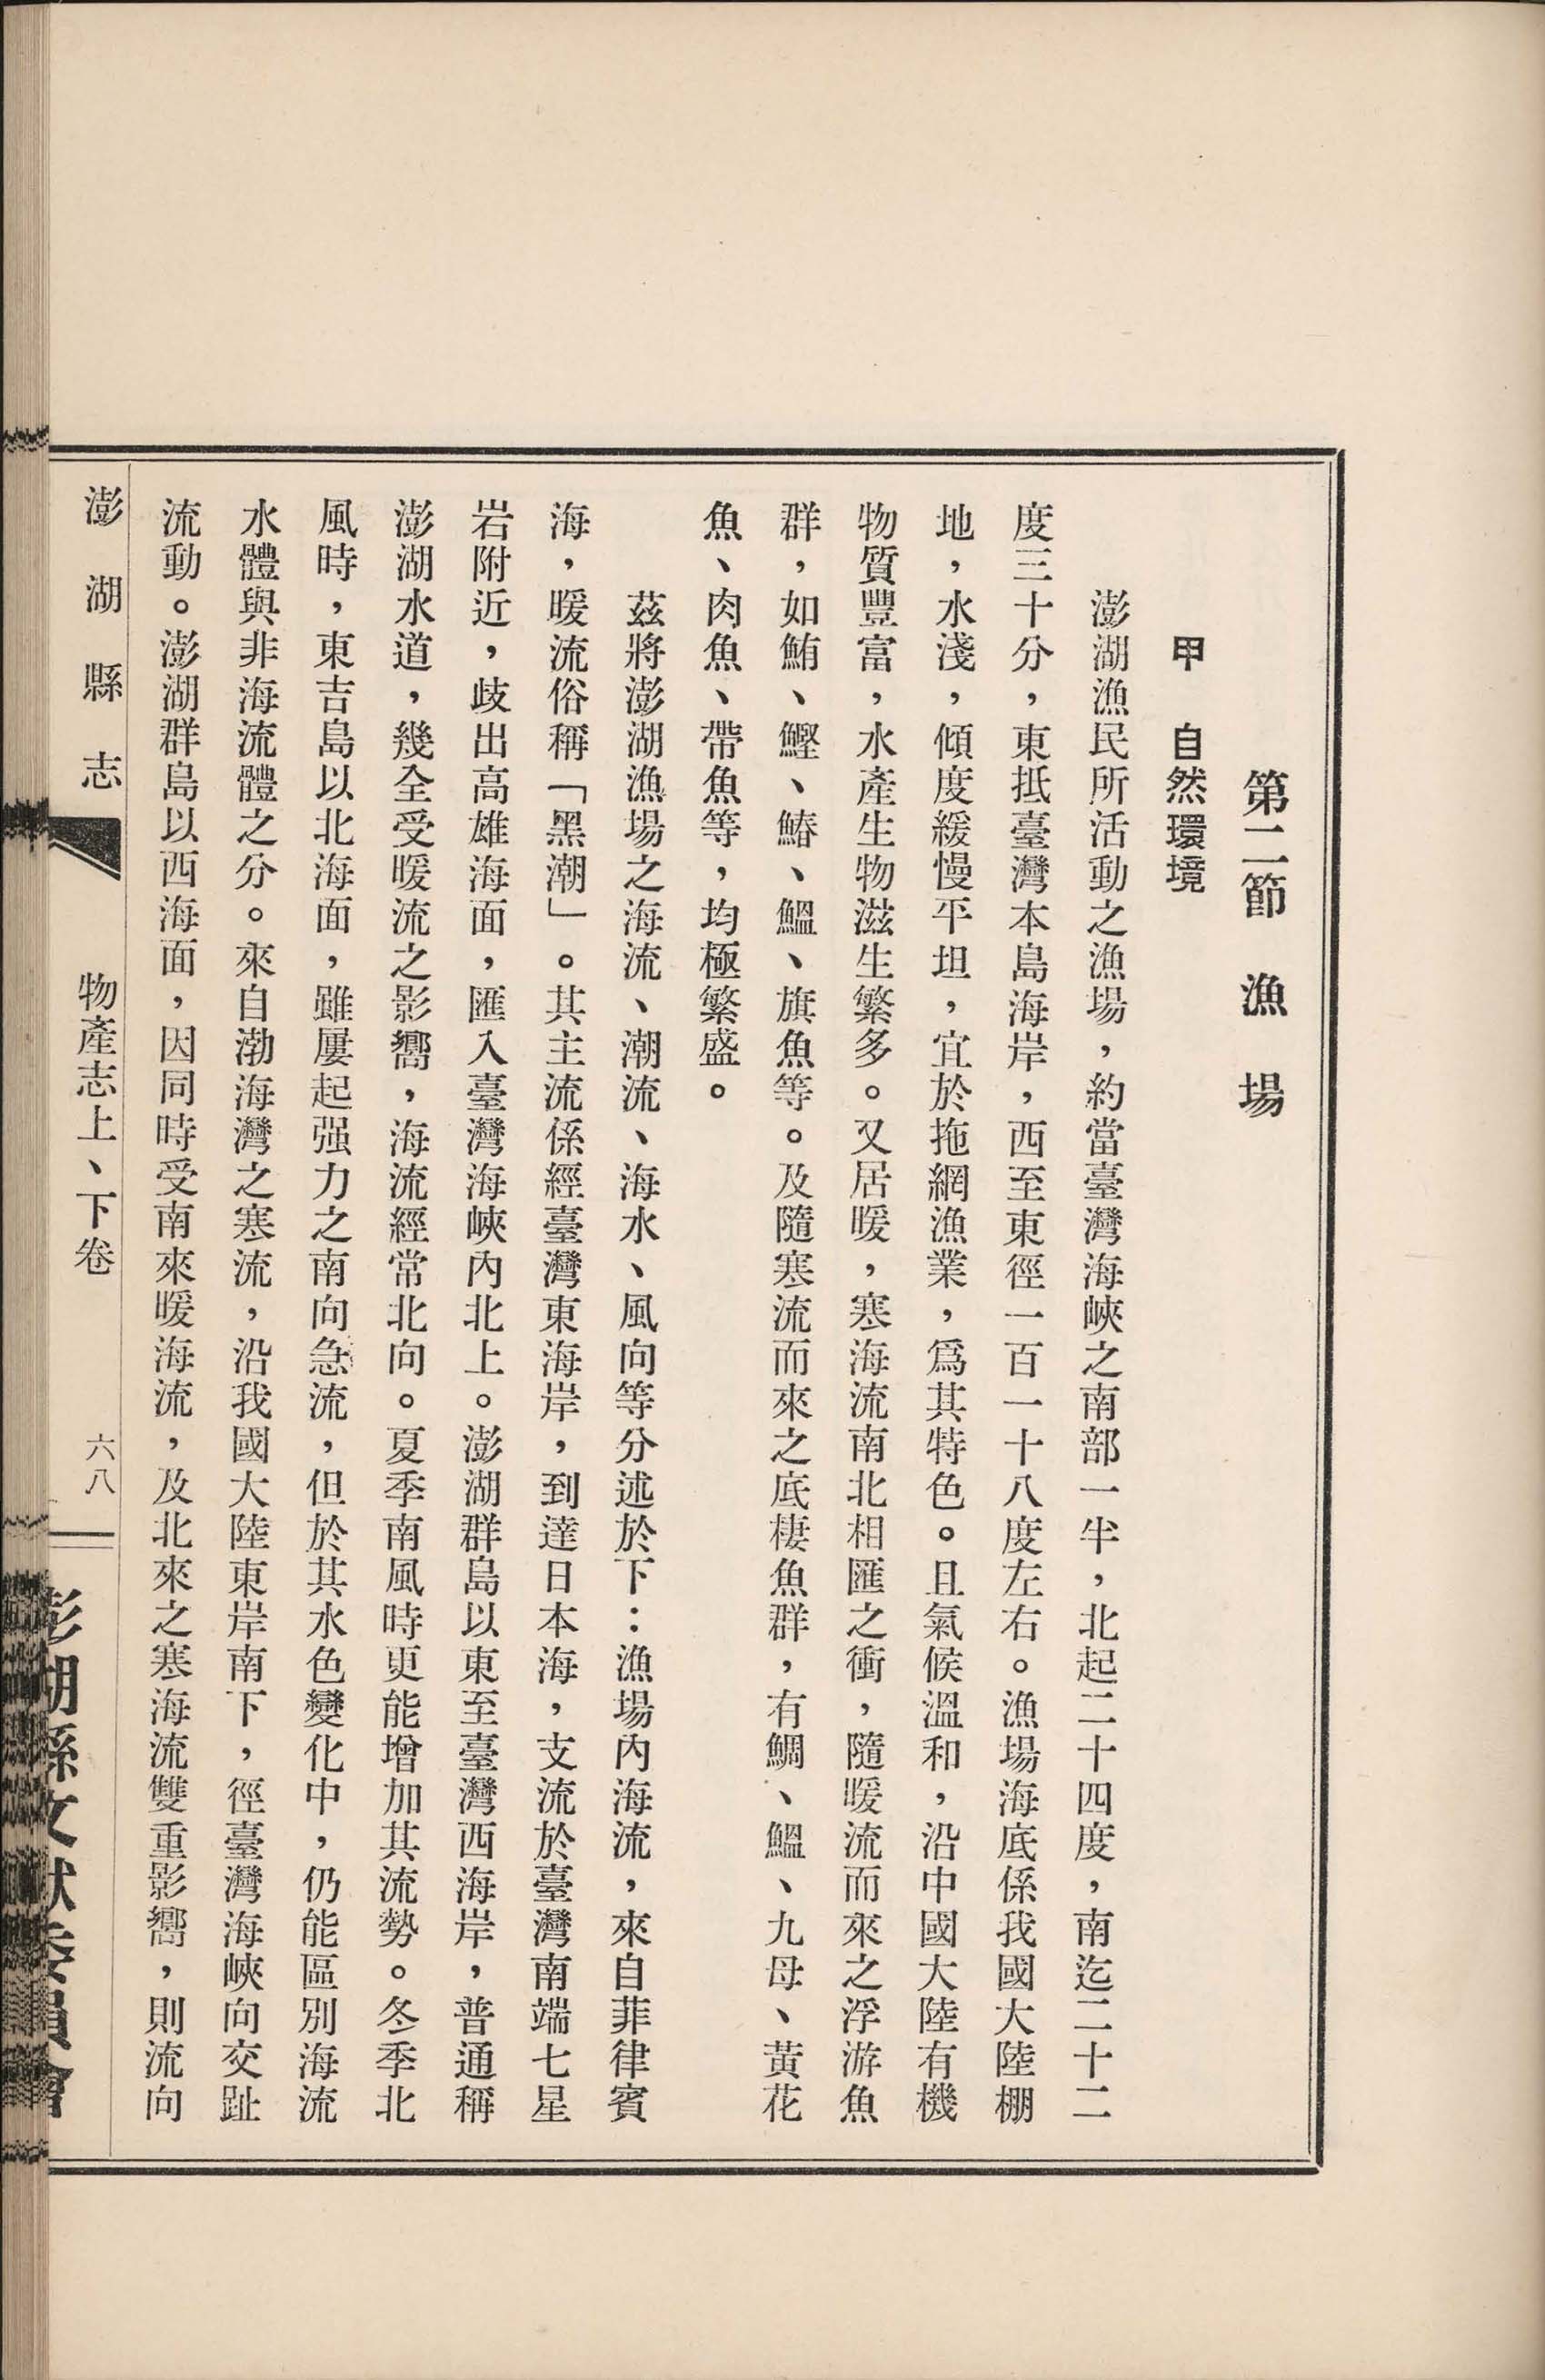 第二節　漁　場
甲　自然環境
澎湖漁民所活動之漁場，約當臺灣海峽之南部一半，北起二十四度，南迄二十二
度三十分，東抵臺灣本島海岸，西至東徑一百一十八度左右。漁場海底係我國大陸棚
地，水淺，傾度緩慢平坦，宜於拖網漁業，爲其特色。且氣候溫和，沿中國大陸有機
物質豐富，水產生物滋生繁多。又居暖，寒海流南北相匯之衝，隨暖流而來之浮游魚
群，如鮪、鰹、鰆、鰮、旗魚等。及隨寒流而來之底棲魚群，有鯛、鰮、九母、黃花
魚、肉魚、帶魚等，均極繁盛。
茲將澎湖漁場之海流、潮流、海水、風向等分述於下：漁場內海流，來自菲律賓
海，暖流俗稱「黑潮」。其主流係經臺灣東海岸，到達日本海，支流於臺灣南端七星
岩附近，歧出高雄海面，匯入臺灣海峽內北上。澎湖群島以東至臺灣西海岸，普通稱
澎湖水道，幾全受暖流之影嚮，海流經常北向。夏季南風時更能增加其流勢。冬季北
風時，東吉島以北海面，雖屢起强力之南向急流，但於其水色變化中，仍能區別海流
水體與非海流體之分。來自渤海灣之寒流，沿我國大陸東岸南下，徑臺灣海峽向交趾
流動。澎湖群島以西海面，因同時受南來暖海流，及北來之寒海流雙重影嚮，則流向
澎湖縣志　物產志上、下卷　六八
澎湖縣文獻委員會